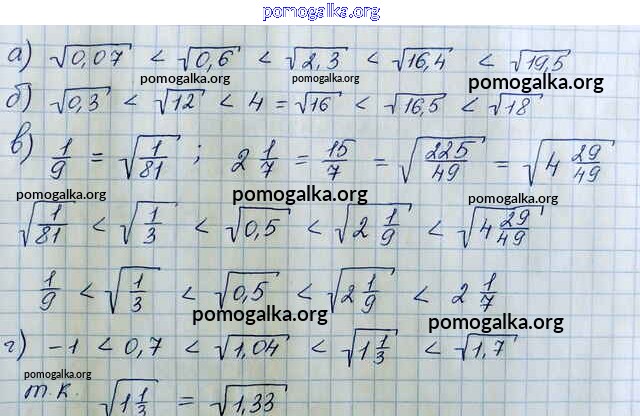 pomogalka.org
а) √0,07 < √0,6 < √2,3 < √16,4 < √19,5
pomogalka.org pomogalka.org pomogalka.org
б) √0,3 < √12 < 4 = √16 < √16,5 < √18
в) 1/9 = √(1/81) ; 2 1/7 = 15/7 = √(225/49) = √(4 29/49)
pomogalka.org pomogalka.org pomogalka.org
√(1/81) < √(1/3) < √0,5 < √(2 1/9) < √(4 29/49)
1/9 < √(1/3) < √0,5 < √(2 1/9) < 2 1/7
pomogalka.org pomogalka.org
г) -1 < 0,7 < √1,04 < √(1 1/3) < √1,7
pomogalka.org
т.к. √(1 1/3) = √1,33